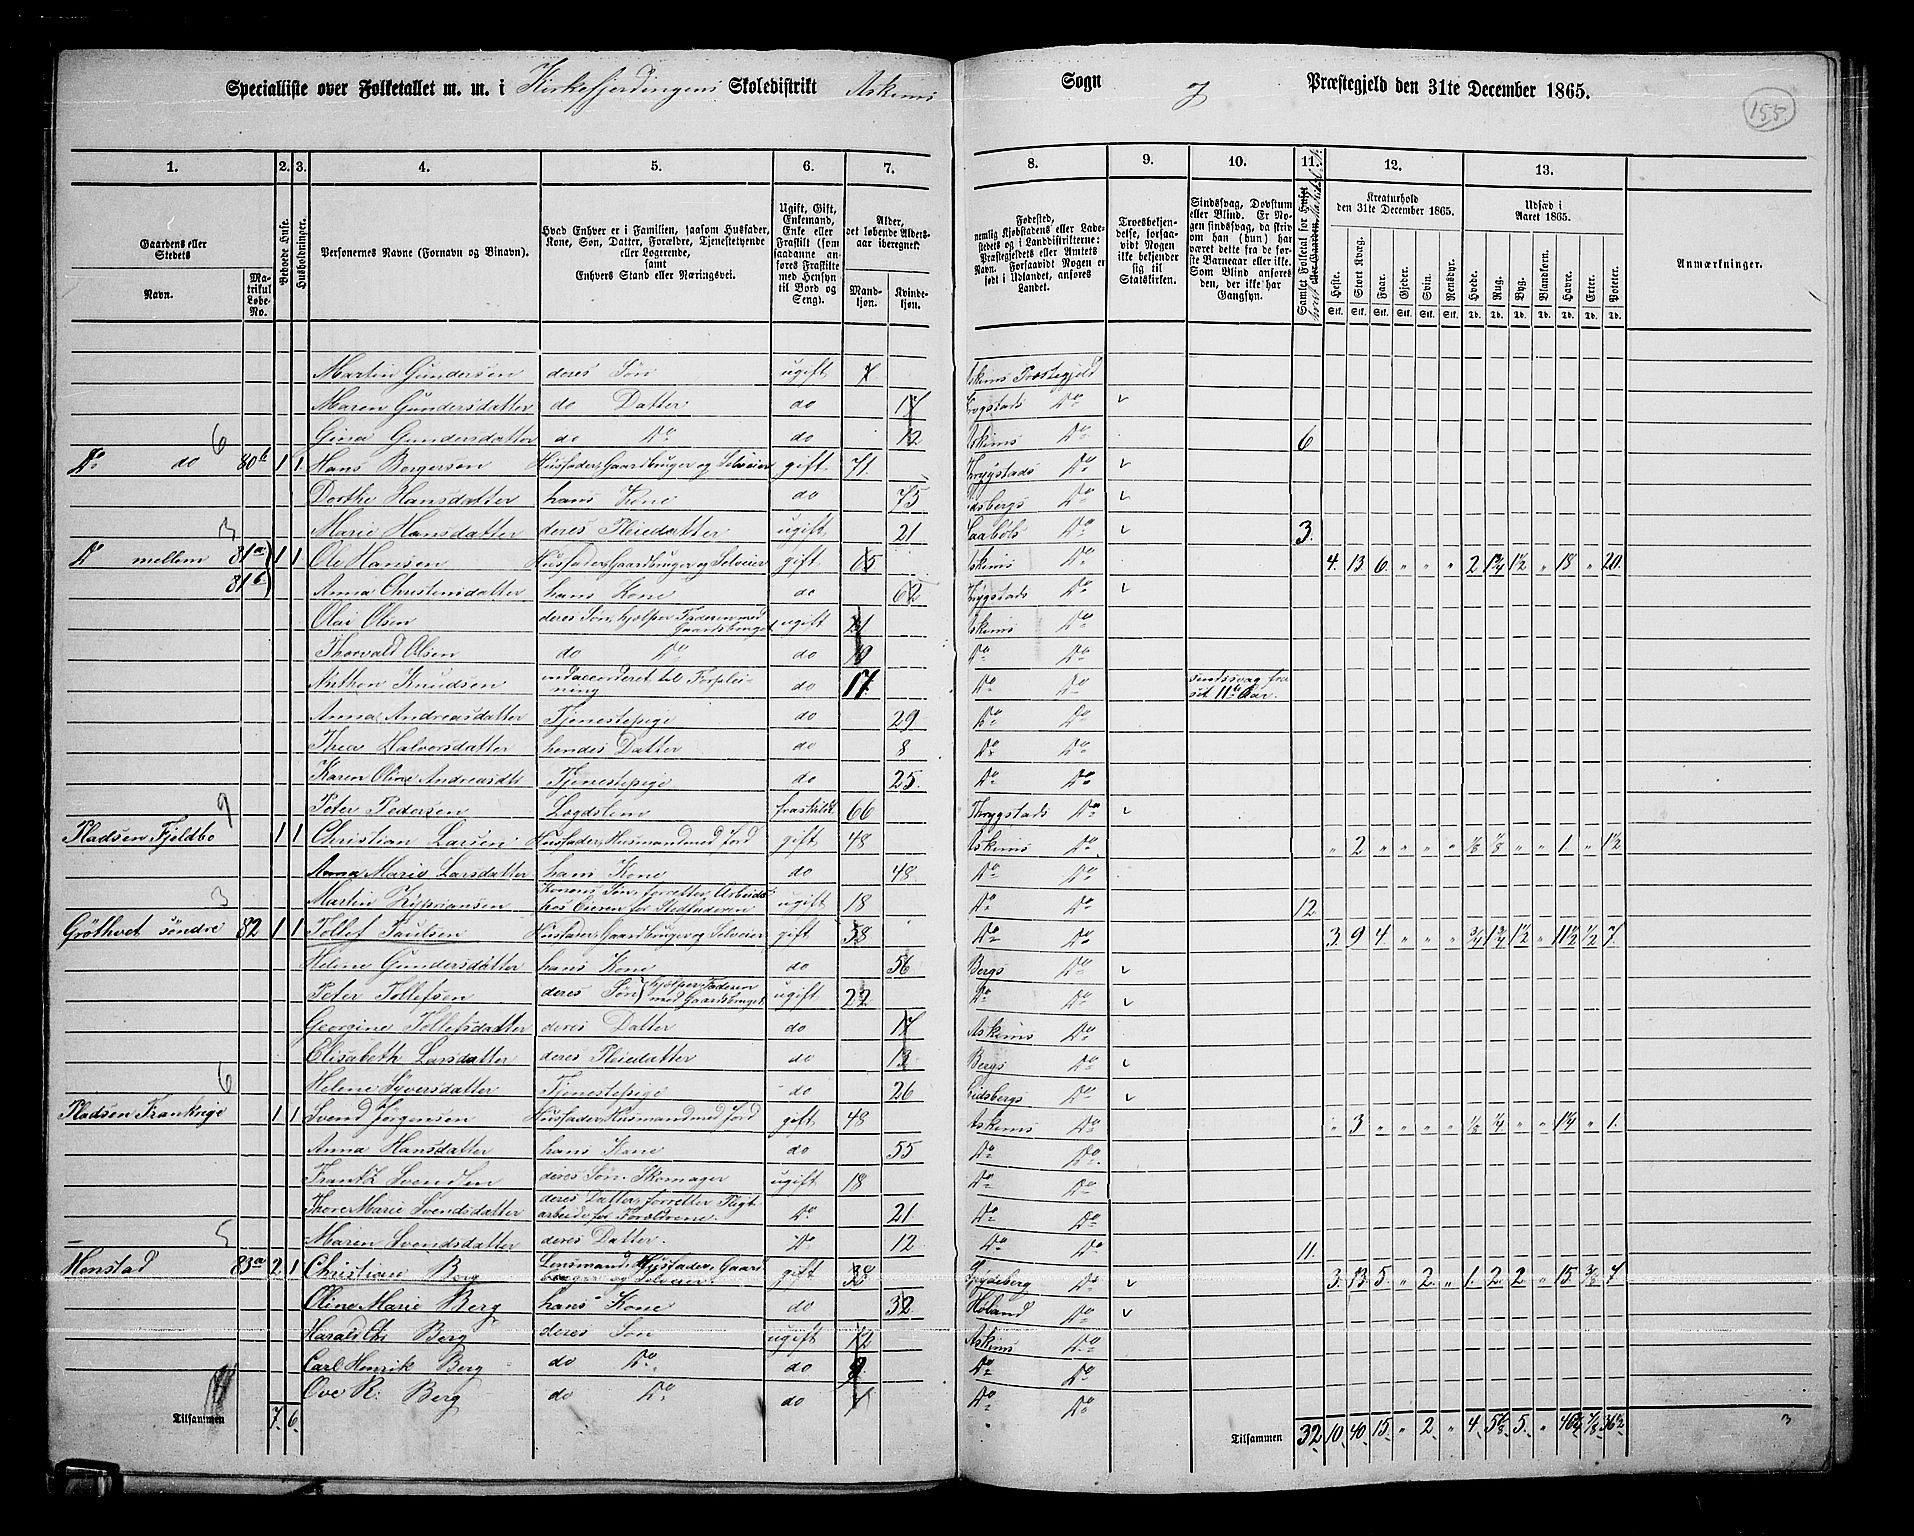 Specialliste over Folketallet m. m. i Kirkefjerdingens Skoledistrikt Askims Sogn og Præstegjeld den 31te December 1865.
155.
1. 2. 3. 4. 5. 6. 7. 8. 9. 10. 11. 12. 13.
Gaardens eller Stedets
Navn.
Matrikul Løbe-No.
Beboede Huse.
Husholdninger.
Personernes Navne (Fornavn og Binavn).
Hvad Enhver er i Familien, saasom Husfader, Kone, Søn, Datter, Forældre, Tjenestetyende eller Logerende, samt Enhvers Stand eller Næringsvei.
Ugift, Gift, Enkemand, Enke eller Fraskilt (som saadanne anføres Fraskilte med Hensyn til Bord og Seng).
Alder, det løbende Alders-aar iberegnet.
Mandkjøn.
Kvindekjøn.
Fødested, nemlig Kjøbstadens eller Ladestedets og i Landdistrikterne: Præstegjeldets eller Amtets Navn. Forsaavidt Nogen er født i Udlandet, anføres Landet.
Troesbekjendelse, forsaavidt Nogen ikke bekjender sig til Statskirken.
Sindssvag, Døvstum eller Blind. Er Nogen sindssvag, da skriv om han (hun) har været dette fra de første Barneaar eller ikke. Som Blind anføres den, der ikke har Gangsyn.
Kreaturhold den 31te December 1865.
Heste. Stort Kvæg. Faar. Gjeder. Svin. Rensdyr.
Udsæd i Aaret 1865.
Hvede. Rug. Byg. Blandkorn. Havre. Erter. Poteter.
Anmærkninger.
Martin Gundersen deres Søn ugift 7 Askims Præstegjeld
Maren Gundersdatter do Datter do 17 Do
6 Gina Gundersdatter do Do do 12 Askims Do 6
Do do 80b 1 1 Hans Borgersen Husfader, Gaardbruger og Selveier gift 71 Trygstads Do
Dorthe Hansdatter hans Kone do 75 Eidsbergs Do
3 Marie Hansdatter deres Pleiedatter ugift 21 Do 3.
Do mellem 81a 1 1 Ole Hansen Husfader, Gaardbruger og Selveier gift 65 Askims Do 4. 13. 6. " " " 2 1 3/4 1 1/2 " 18 " 20.
81b Anna Christensdatter hans Kone do 62 Trygstads Do
Olai Olsen deres Søn, hjælper Faderen med Gaardsbruget ugift 21 Askims Do
Thorvald Olsen do Do do 19 Do Do
Anthon Knudsen indaccorderet til Forpleining do 17 Do Do sindssvag fra sit 11te Aar.
Anna Andreasdatter Tjenestepige do 29 Do Do
Thea Halvorsdatter hendes Datter do 8 Do Do
Karen Oline Andreasdt Tjenestepige do 25 Do Do
9 Peter Pedersen Lægdslem fraskildt 66 Trygstads Do
Pladsen Fjeldbo 1 1 Christian Larsen Husfader, Husmand med Jord gift 48 Askims Do " 2 " " " " 1/8 1/8 " " 1. " 1 1/2
Anna Marie Larsdatter hans Kone do 48 Do Do
3 Martin Konens Søn, forretter Arbeide hos Eieren for Stedfaderen ugift 18 Do Do 12
Grøthvet søndre 82 1 1 Tollef Paulsen Husfader, Gaardbruger og Selveier gift 58 Do Do 3. 9 4. " " " 3/4 1 3/4 1 1/2 " 11 1/2 1/2 7.
Helene Gundersdatter hans Kone do 56 Bergs Do
Peter Tollefsen deres Søn hjælper Faderen med Gaardsbruget ugift 22 Do Do
Georgine Tollefsdatter deres Datter do 17 Askims Do
Elisabeth Larsdatter deres Pleiedatter do 13 Bergs Do
6 Helene Syversdatter Tjenestepige do 26 Eidsbergs Do
Pladsen Frankrige 1 1 Svend Jørgensen Husfader, Husmand med Jord gift 48 Askims Do " 3 " " " " 1/8 1/4 " " 1 1/4 " 1.
Anna Hansdatter hans Kone do 55 Do Do.
Frantz Svendsen deres Søn. Skomager ugift 18 Do Do
Thore Marie Svendsdatter deres Datter, forretter Pligtarbeide for Forældrene. Do 21 Do Do
5 Maren Svendsdatter deres Datter. Do 12 Do Do 11.
Henstad 83a 2 1 Christian Berg Lensmand, Husfader, Gaardbruger og Selveier gift 38 Spydeberg Do 3. 13. 5. " 2. " 1. 2. 2. " 15. 3/8 7
Oline Marie Berg hans Kone do 32 Høland Do
Harald Chr Berg deres Søn ugift 12 Askims Do.
Carl Henrik Berg do Do. do 9 Do Do
Ove R: Berg do Do do 7 Do Do
Tilsammen 7. 6.
Tilsammen 32 10. 40. 15. " 2. " 4. 5 " 36 1/2